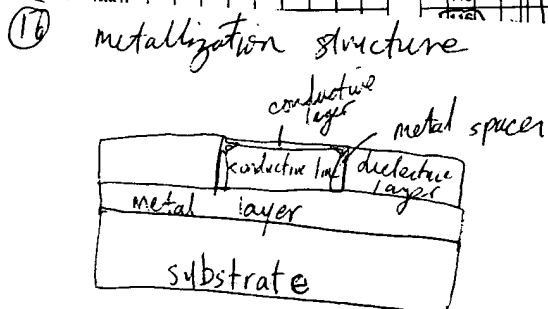 16 metallization structure
conductive
layer
metal spacer
conductive line
dielectric
layer
metal layer
substrate